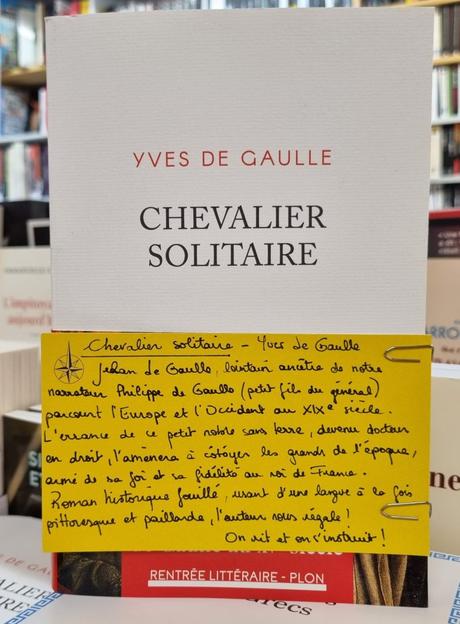 YVES DE GAULLE
CHEVALIER
SOLITAIRE
Chevalier solitaire - Yves de Gaulle
Jehan de Gaulle, lointain ancêtre de notre
narrateur Philippe de Gaulle (petit fils du général)
parcourt l'Europe et l'Occident au XIXe siècle.
L'errance de ce petit noble sans terre, devenu docteur
en droit, l'amènera à côtoyer les grands de l'époque,
armé de sa foi et sa fidélité au roi de France.
Roman historique fouillé, usant d'une langue à la fois
pittoresque et paillarde, l'auteur nous régale !
On rit et on s'instruit !
RENTRÉE LITTÉRAIRE - PLON